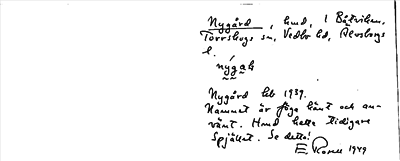 Nygård, hmd, i Båtviken,
Torrskogs sn, Vedbo hd, Älvsborgs
l.
nýgaḷ
Nygård heb 1939.
Namnet är föga känt och an-
vänt. Hmd hette tidigare
Spjället. Se detta!
E Rosell 1949